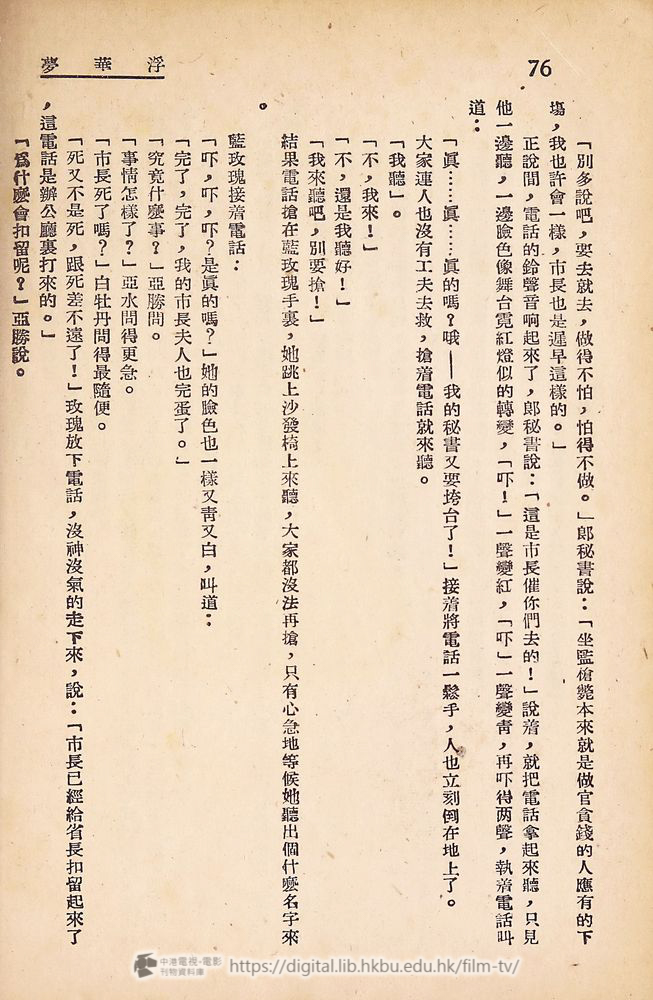 76
浮華夢
「別多說吧，要去就去，做得不怕，怕得不做。」郞秘書說：「坐監槍斃本來就是做官貪錢的人應有的下
塲，我也許會一樣，市長也是遲早這樣的。」
正說間，電話的鈴聲音响起來了，郞秘書說：「這是市長催你們去的！」說着，就把電話拿起來聽，只見
他一邊聽，一邊臉色像舞台霓紅燈似的轉變，「吓！」一聲變紅，「吓」一聲變靑，再吓得两聲，執着電話叫
道：
「眞……眞……眞的嗎？哦——我的秘書又要垮台了！」接着將電話一鬆手，人也立刻倒在地上了。
大家連人也沒有工夫去救，搶着電話就來聽。
「我聽」。
「不，我來！」
「不，還是我聽好！」
「我來聽吧，別要搶！」
結果電話搶在藍玫瑰手裏，她跳上沙發椅上來聽，大家都沒法再搶，只有心急地等候她聽出個什麽名字來
。
藍玫瑰接着電話：
「吓，吓，吓？是眞的嗎？」她的臉色也一樣又靑又白，叫道：
「完了，完了，我的市長夫人也完蛋了。」
「究竟什麽事？」亞勝問。
「事情怎樣了？」亞水問得更急。
「市長死了嗎？」白牡丹問得最隨便。
「死又不是死，跟死差不遠了！」玫瑰放下電話，沒神沒氣的走下來，說：「市長已經給省長扣留起來了
，這電話是辦公廳裏打來的。」
「爲什麽會扣留呢？」亞勝說。
中港電視·電影
刊物資料庫
https://digital.lib.hkbu.edu.hk/film-tv/